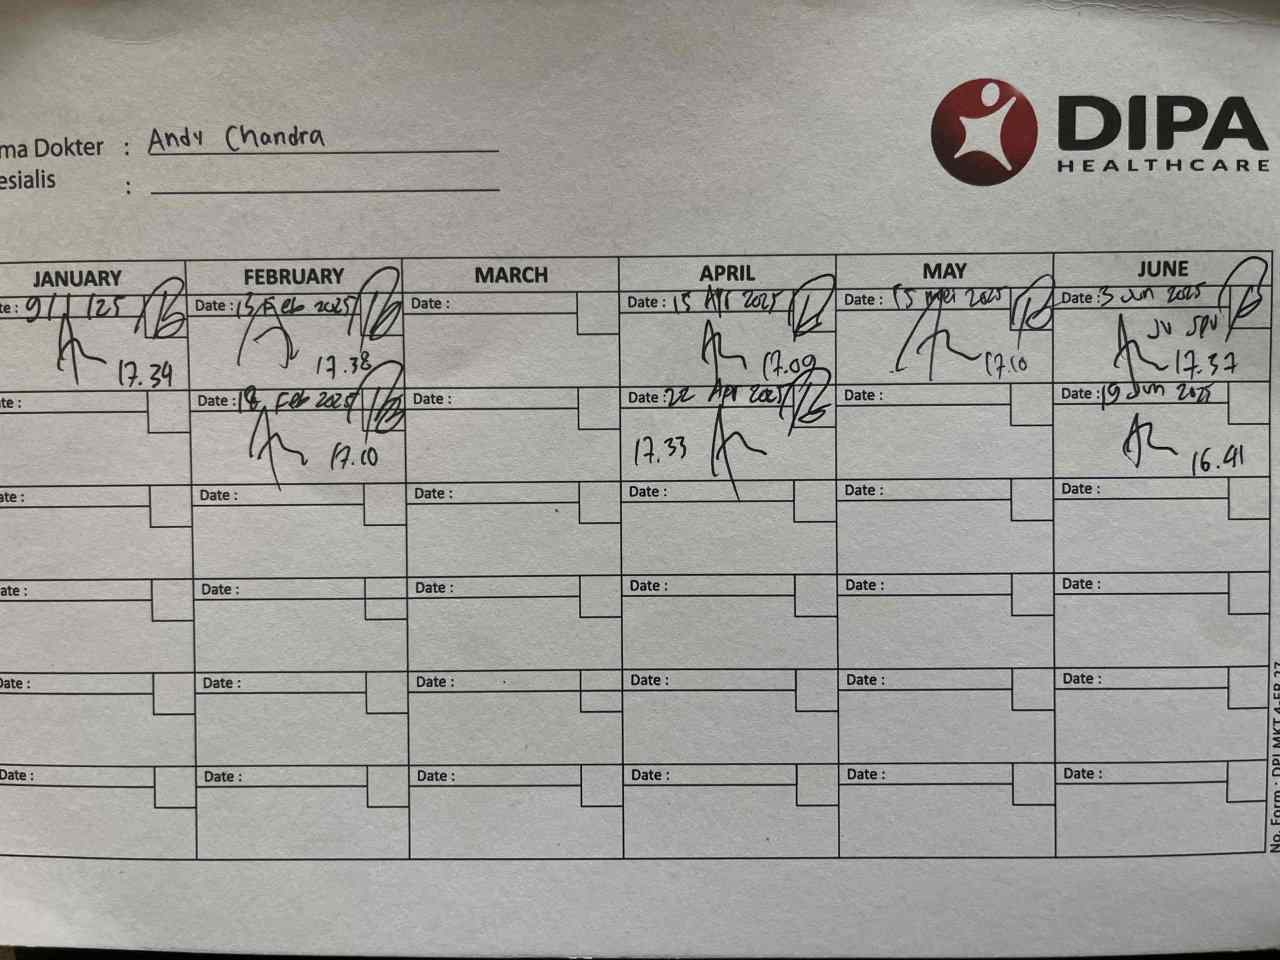 DIPA
HEALTHCARE
ma Dokter : Andy Chandra
esialis :
JANUARY FEBRUARY MARCH APRIL MAY JUNE
te : 9/1/25 Date : 13 Feb 2025 Date : Date : 15 Apr 2025 Date : 15 Mei 2025 Date : 3 Jun 2025
JV SPV
17.34 17.38 17.09 17.10 17.37
te : Date : 18 Feb 2025 Date : Date : 22 Apr 2025 Date : Date : 19 Jun 2025
17.10 17.33 16.41
ate : Date : Date : Date : Date : Date :
ate : Date : Date : Date : Date : Date :
Date : Date : Date : Date : Date : Date :
Date : Date : Date : Date : Date : Date :
No. Form : DPI.MKT.4-FR.27